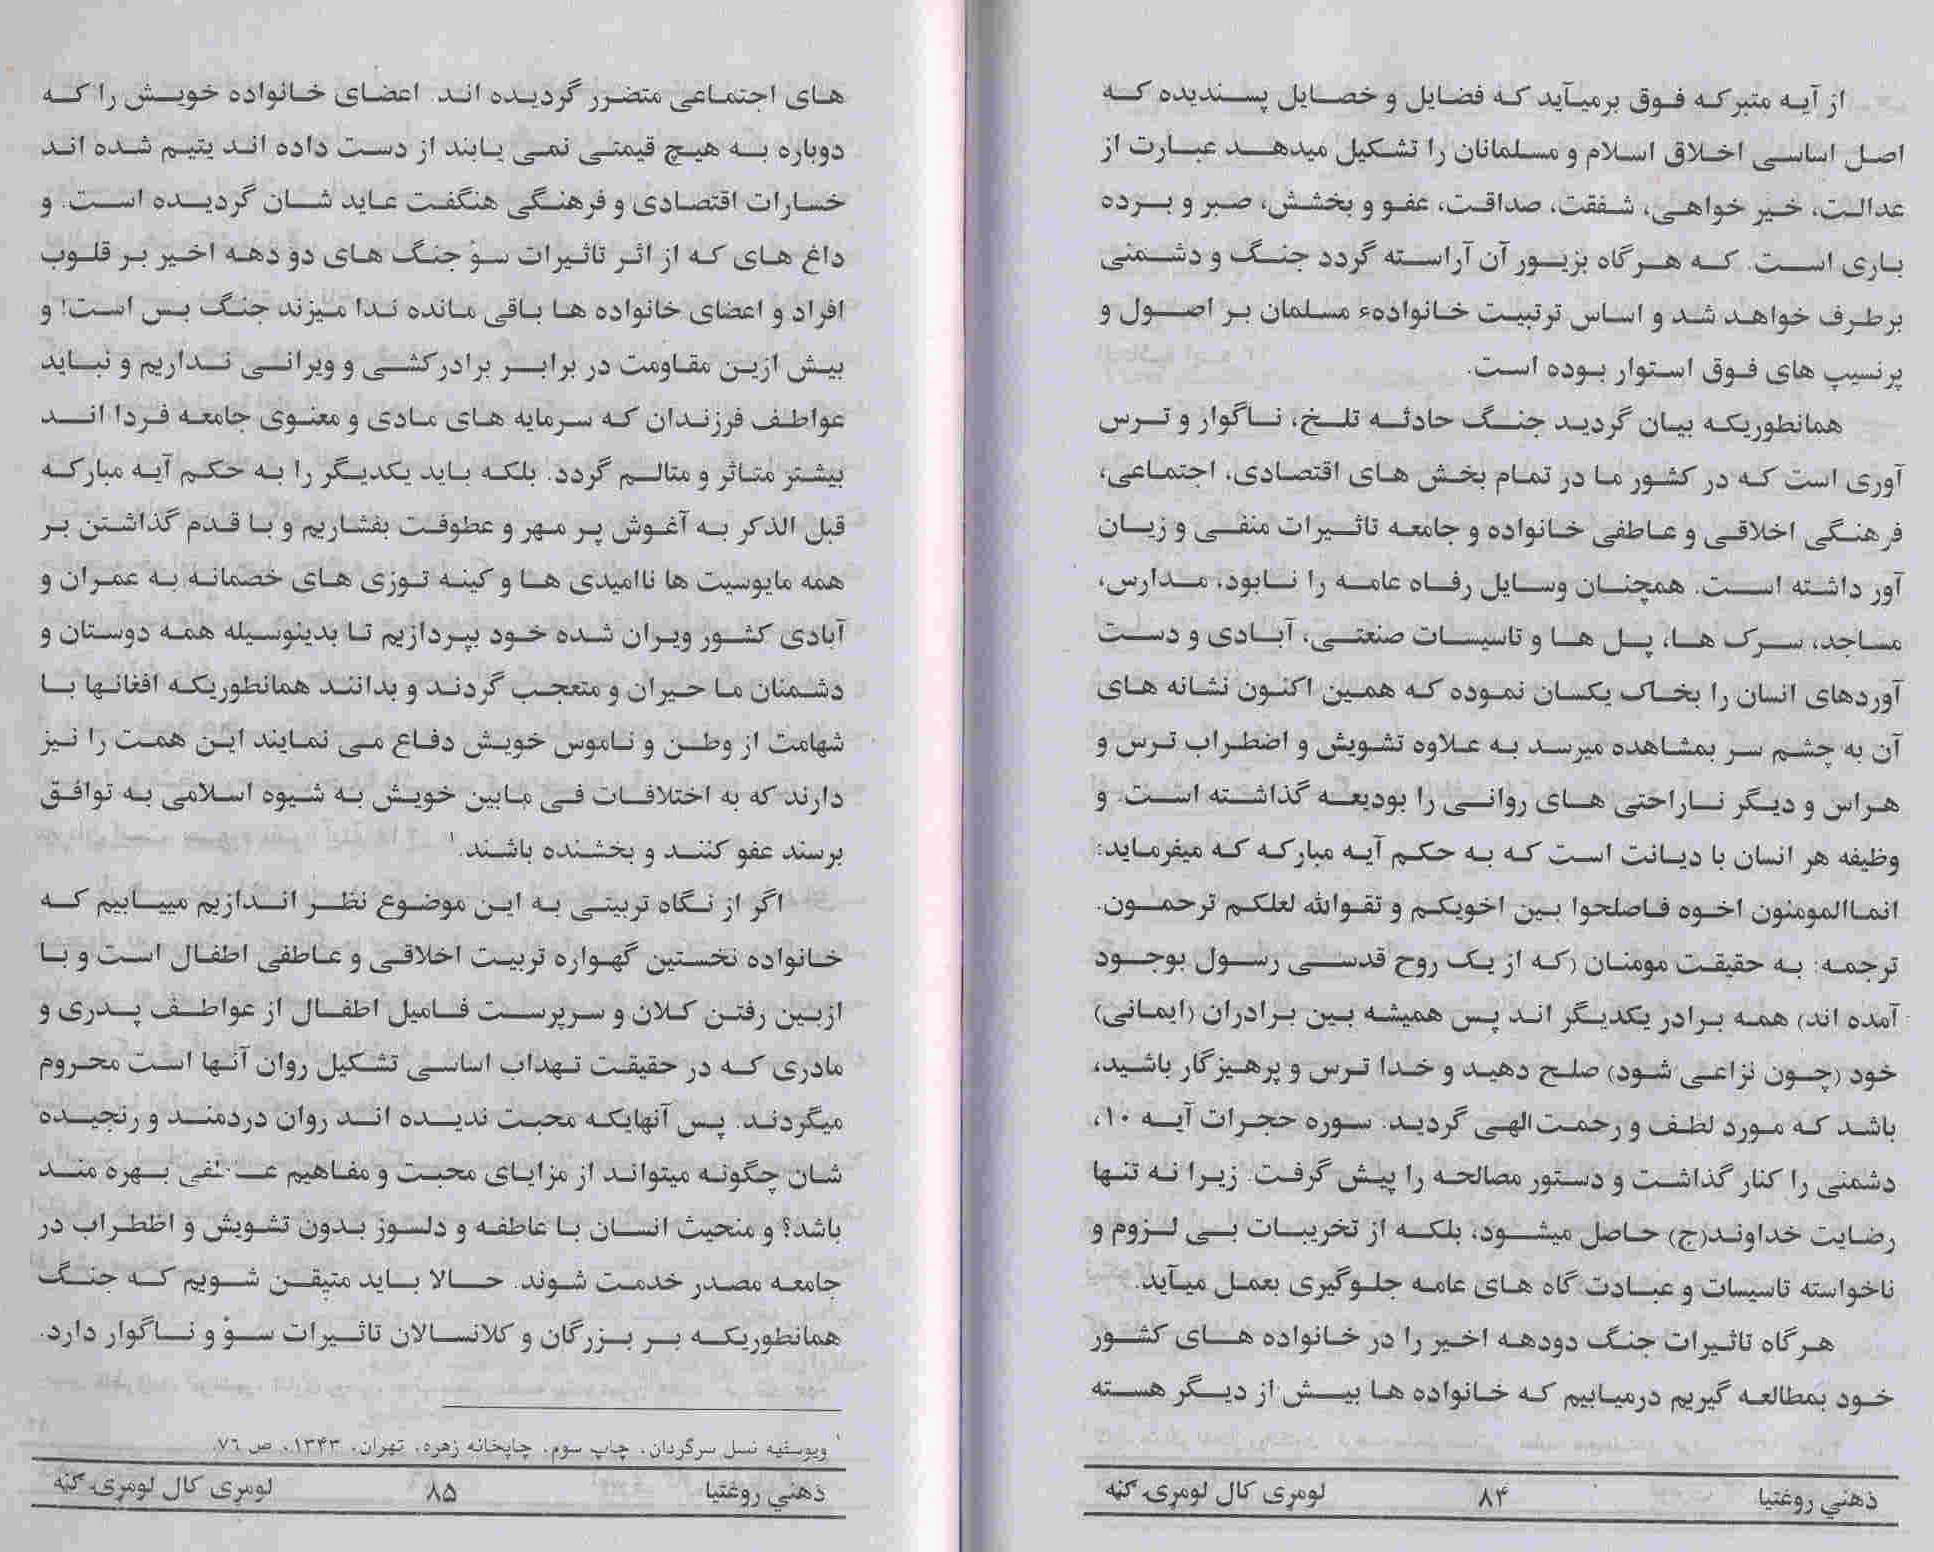 از آیه متبرکه فوق برمیآید که فضایل و خصایل پسندیده که
اصل اساسی اخلاق اسلام و مسلمانان را تشکیل میدهد عبارت از
عدالت، خیر خواهی، شفقت، صداقت، عفو و بخشش، صبر و برده
باری است. که هرگاه بزیور آن آراسته گردد جنگ و دشمنی
برطرف خواهد شد و اساس ترتبیت خانوادهء مسلمان بر اصول و
پرنسیپ های فوق استوار بوده است.
همانطوریکه بیان گردید جنگ حادثه تلخ، ناگوار و ترس
آوری است که در کشور ما در تمام بخش های اقتصادی، اجتماعی،
فرهنگی اخلاقی و عاطفی خانواده و جامعه تاثیرات منفی و زیان
آور داشته است. همچنان وسایل رفاه عامه را نابود، مدارس،
مساجد، سرک ها، پل ها و تاسیسات صنعتی، آبادی و دست
آوردهای انسان را بخاک یکسان نموده که همین اکنون نشانه های
آن به چشم سر بمشاهده میرسد به علاوه تشویش و اضطراب ترس و
هراس و دیگر ناراحتی های روانی را بودیعه گذاشته است. و
وظیفه هر انسان با دیانت است که به حکم آیه مبارکه که میفرماید:
انماالمومنون اخوه فاصلحوا بین اخویکم و تقوالله لعلکم ترحمون.
ترجمه: به حقیقت مومنان (که از یک روح قدسی رسول بوجود
آمده اند) همه برادر یکدیگر اند پس همیشه بین برادران (ایمانی)
خود (چون نزاعی شود) صلح دهید و خدا ترس و پرهیزگار باشید،
باشد که مورد لطف و رحمت الهی گردید. سوره حجرات آیه ۱۰،
دشمنی را کنار گذاشت و دستور مصالحه را پیش گرفت. زیرا نه تنها
رضایت خداوند(ج) حاصل میشود، بلکه از تخریبات بی لزوم و
ناخواسته تاسیسات و عبادت گاه های عامه جلوگیری بعمل میآید.
هرگاه تاثیرات جنگ دودهه اخیر را در خانواده های کشور
خود بمطالعه گیریم درمیابیم که خانواده ها بیش از دیگر هسته
ذهني روغتیا ۸۴ لومړی کال لومړی گڼه
های اجتماعی متضرر گردیده اند. اعضای خانواده خویش را که
دوباره به هیچ قیمتی نمی یابند از دست داده اند یتیم شده اند
خسارات اقتصادی و فرهنگی هنگفت عاید شان گردیده است. و
داغ های که از اثر تاثیرات سؤ جنگ های دو دهه اخیر بر قلوب
افراد و اعضای خانواده ها باقی مانده ندا میزند جنگ بس است! و
بیش ازین مقاومت در برابر برادرکشی و ویرانی نداریم و نباید
عواطف فرزندان که سرمایه های مادی و معنوی جامعه فردا اند
بیشتر متاثر و متالم گردد. بلکه باید یکدیگر را به حکم آیه مبارکه
قبل الذکر به آغوش پر مهر و عطوفت بفشاریم و با قدم گذاشتن بر
همه مایوسیت ها ناامیدی ها و کینه توزی های خصمانه به عمران و
آبادی کشور ویران شده خود بپردازیم تا بدینوسیله همه دوستان و
دشمنان ما حیران و متعجب گردند و بدانند همانطوریکه افغانها با
شهامت از وطن و ناموس خویش دفاع می نمایند این همت را نیز
دارند که به اختلافات فی مابین خویش به شیوه اسلامی به توافق
برسند عفو کنند و بخشنده باشند.۱
اگر از نگاه تربیتی به این موضوع نظر اندازیم مییابیم که
خانواده نخستین گهواره تربیت اخلاقی و عاطفی اطفال است و با
ازبین رفتن کلان و سرپرست فامیل اطفال از عواطف پدری و
مادری که در حقیقت تهداب اساسی تشکیل روان آنها است محروم
میگردند. پس آنهایکه محبت ندیده اند روان دردمند و رنجیده
شان چگونه میتواند از مزایای محبت و مفاهیم عاطفی بهره مند
باشد؟ و منحیث انسان با عاطفه و دلسوز بدون تشویش و اظطراب در
جامعه مصدر خدمت شوند. حالا باید متیقن شویم که جنگ
همانطوریکه بر بزرگان و کلانسالان تاثیرات سؤ و ناگوار دارد.
۱ ویوسفیه نسل سرگردان، چاپ سوم، چاپخانه زهره، تهران، ۱۳۴۳، ص ۷٦.
ذهني روغتیا ۸۵ لومړی کال لومړی گڼه